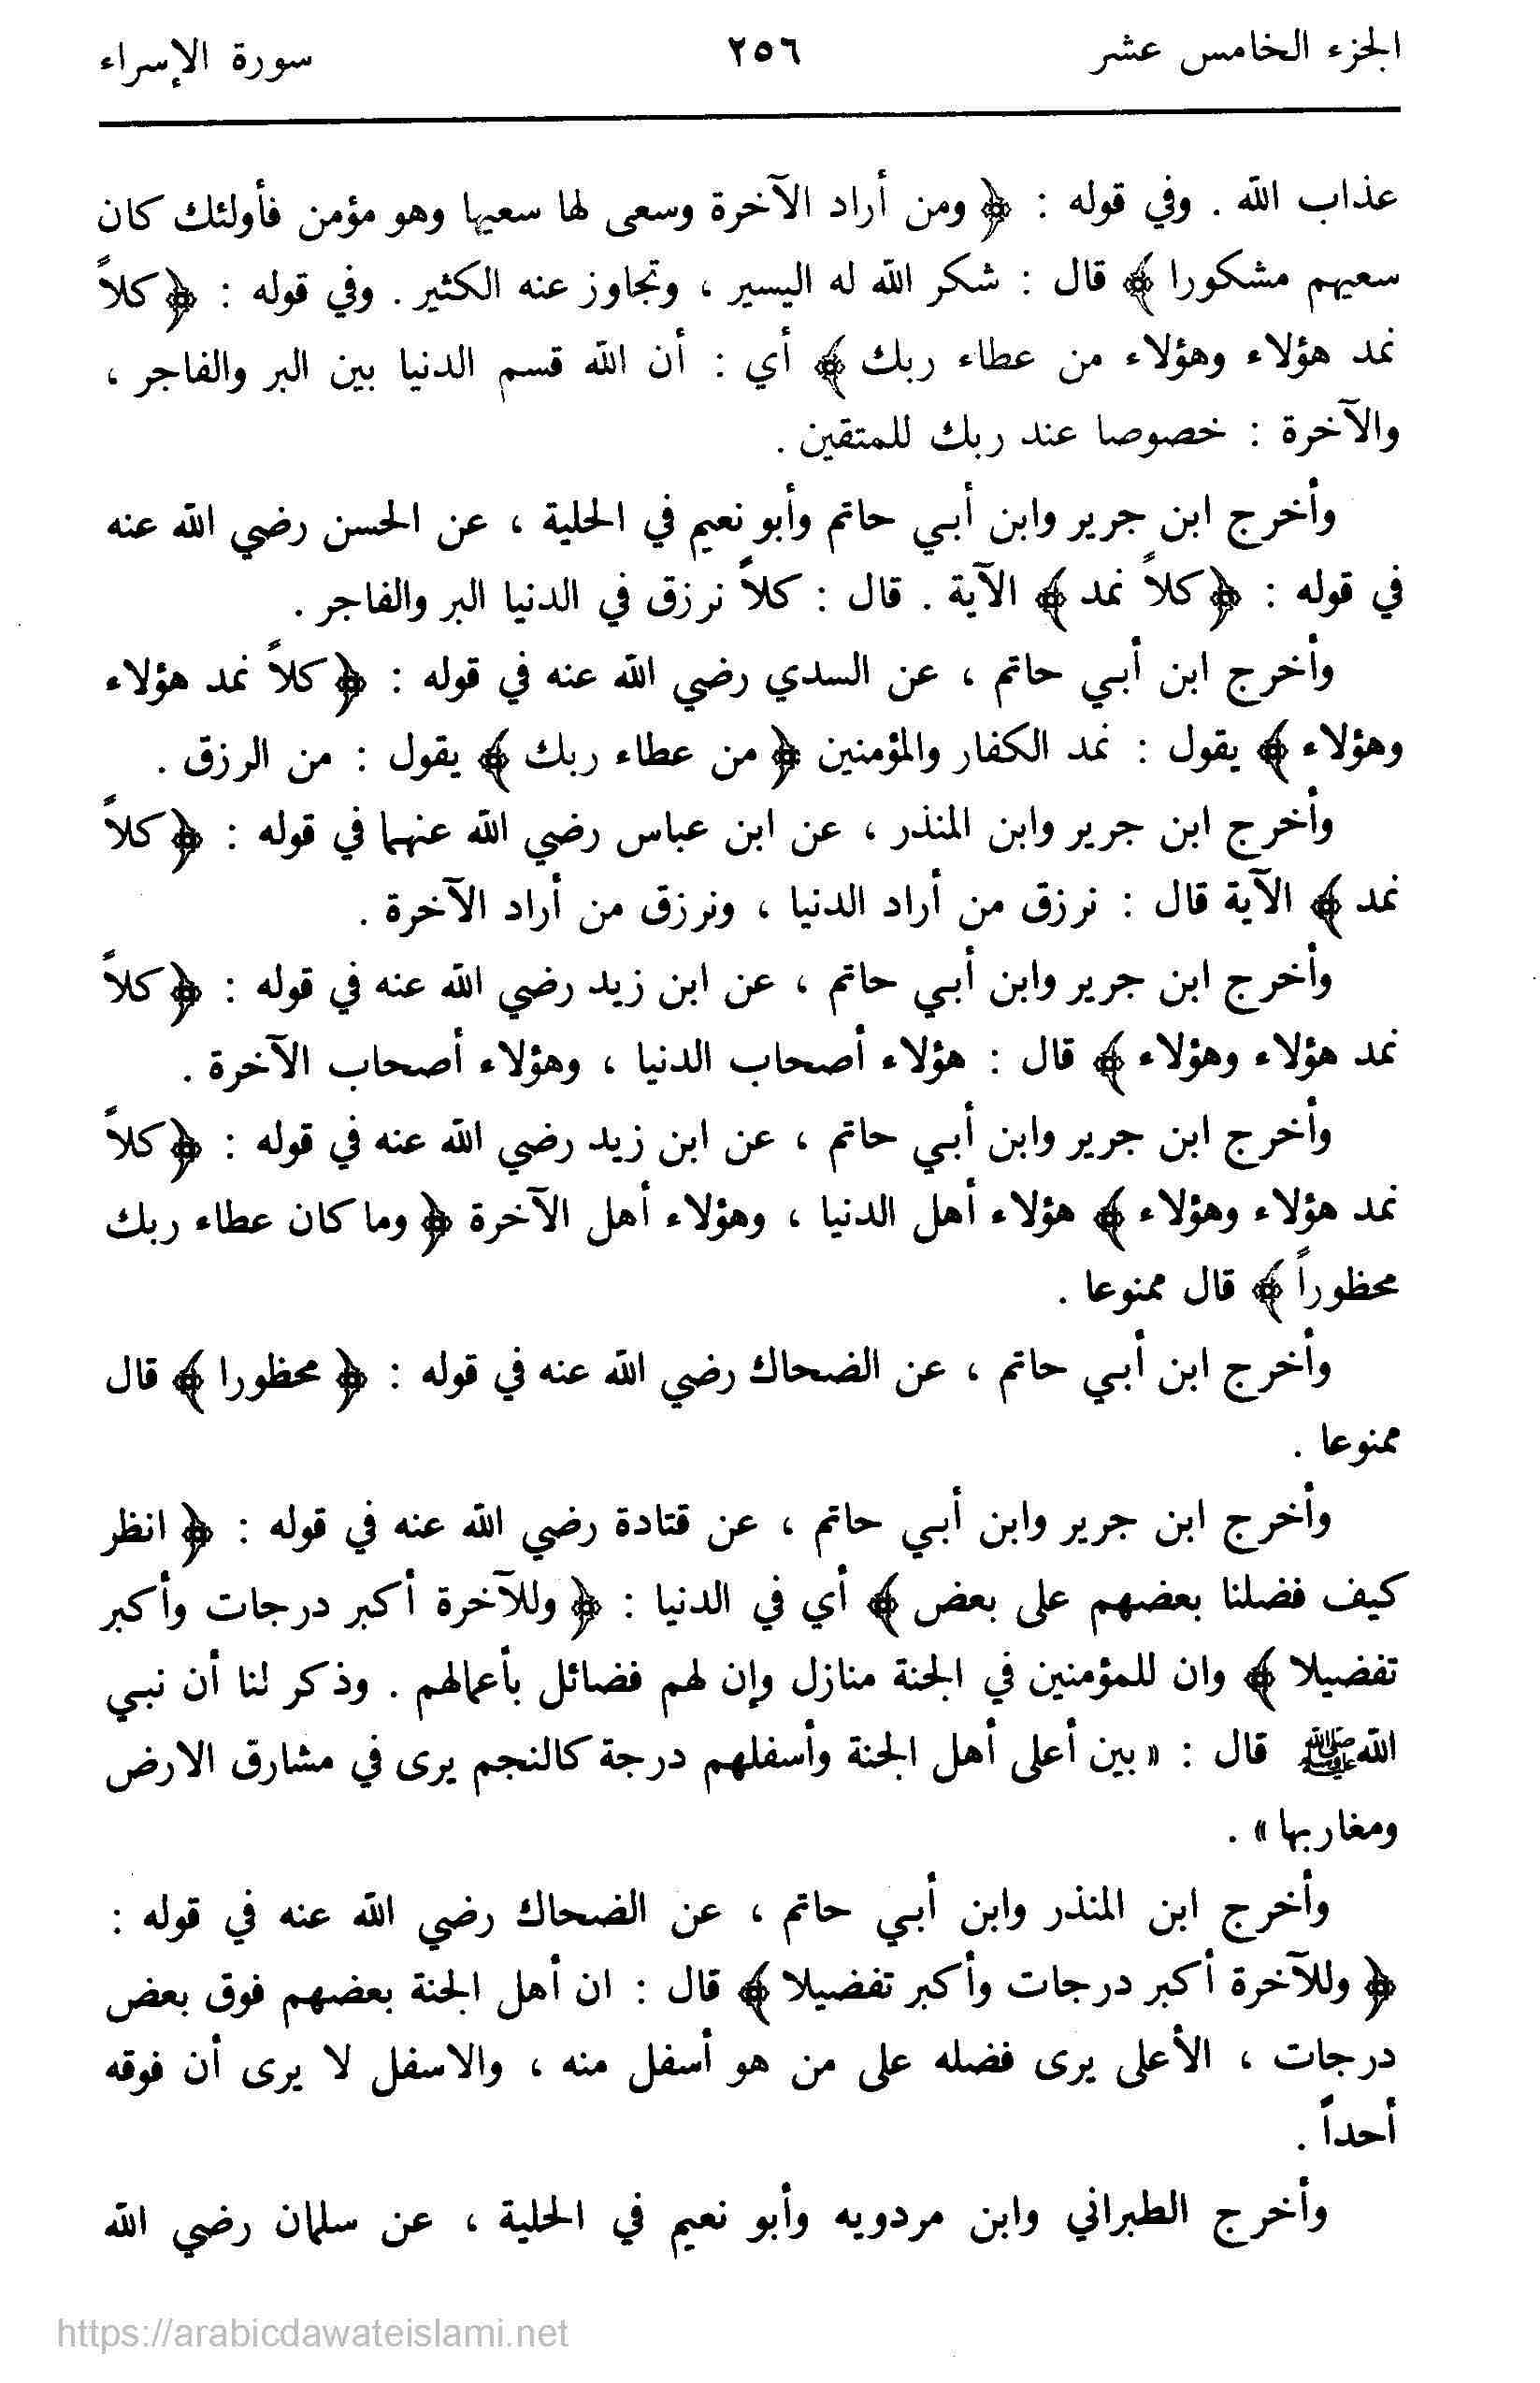 الجزء الخامس عشر ٢٥٦ سورة الإسراء
عذاب الله . وفي قوله : ﴿ ومن أراد الآخرة وسعى لها سعيها وهو مؤمن فأولئك كان
سعيهم مشكورا ﴾ قال : شكر الله له اليسير ، وتجاوز عنه الكثير . وفي قوله : ﴿ كلاً
نمد هؤلاء وهؤلاء من عطاء ربك ﴾ أي : أن الله قسم الدنيا بين البر والفاجر ،
والآخرة : خصوصا عند ربك للمتقين .
وأخرج ابن جرير وابن أبـي حاتم وأبو نعيم في الحلية ، عن الحسن رضي الله عنه
في قوله : ﴿ كلاً نمد ﴾ الآية . قال : كلاً نرزق في الدنيا البر والفاجر .
وأخرج ابن أبـي حاتم ، عن السدي رضي الله عنه في قوله : ﴿ كلاً نمد هؤلاء
وهؤلاء ﴾ يقول : نمد الكفار والمؤمنين ﴿ من عطاء ربك ﴾ يقول : من الرزق .
وأخرج ابن جرير وابن المنذر ، عن ابن عباس رضي الله عنهما في قوله : ﴿ كلاً
نمد ﴾ الآية قال : نرزق من أراد الدنيا ، ونرزق من أراد الآخرة .
وأخرج ابن جرير وابن أبـي حاتم ، عن ابن زيد رضي الله عنه في قوله : ﴿ كلاً
نمد هؤلاء وهؤلاء ﴾ قال : هؤلاء أصحاب الدنيا ، وهؤلاء أصحاب الآخرة .
وأخرج ابن جرير وابن أبـي حاتم ، عن ابن زيد رضي الله عنه في قوله : ﴿ كلاً
نمد هؤلاء وهؤلاء ﴾ هؤلاء أهل الدنيا ، وهؤلاء أهل الآخرة ﴿ وما كان عطاء ربك
محظوراً ﴾ قال ممنوعا .
وأخرج ابن أبـي حاتم ، عن الضحاك رضي الله عنه في قوله : ﴿ محظورا ﴾ قال
ممنوعا .
وأخرج ابن جرير وابن أبـي حاتم ، عن قتادة رضي الله عنه في قوله : ﴿ انظر
كيف فضلنا بعضهم على بعض ﴾ أي في الدنيا : ﴿ وللآخرة أكبر درجات وأكبر
تفضيلا ﴾ وان للمؤمنين في الجنة منازل وإن لهم فضائل بأعمالهم . وذكر لنا أن نبـي
الله ﷺ قال : « بين أعلى أهل الجنة وأسفلهم درجة كالنجم يرى في مشارق الارض
ومغاربها » .
وأخرج ابن المنذر وابن أبـي حاتم ، عن الضحاك رضي الله عنه في قوله :
﴿ وللآخرة أكبر درجات وأكبر تفضيلا ﴾ قال : ان أهل الجنة بعضهم فوق بعض
درجات ، الأعلى يرى فضله على من هو أسفل منه ، والاسفل لا يرى أن فوقه
أحداً .
وأخرج الطبراني وابن مردويه وأبو نعيم في الحلية ، عن سلمان رضي الله
https://arabicdawateislami.net